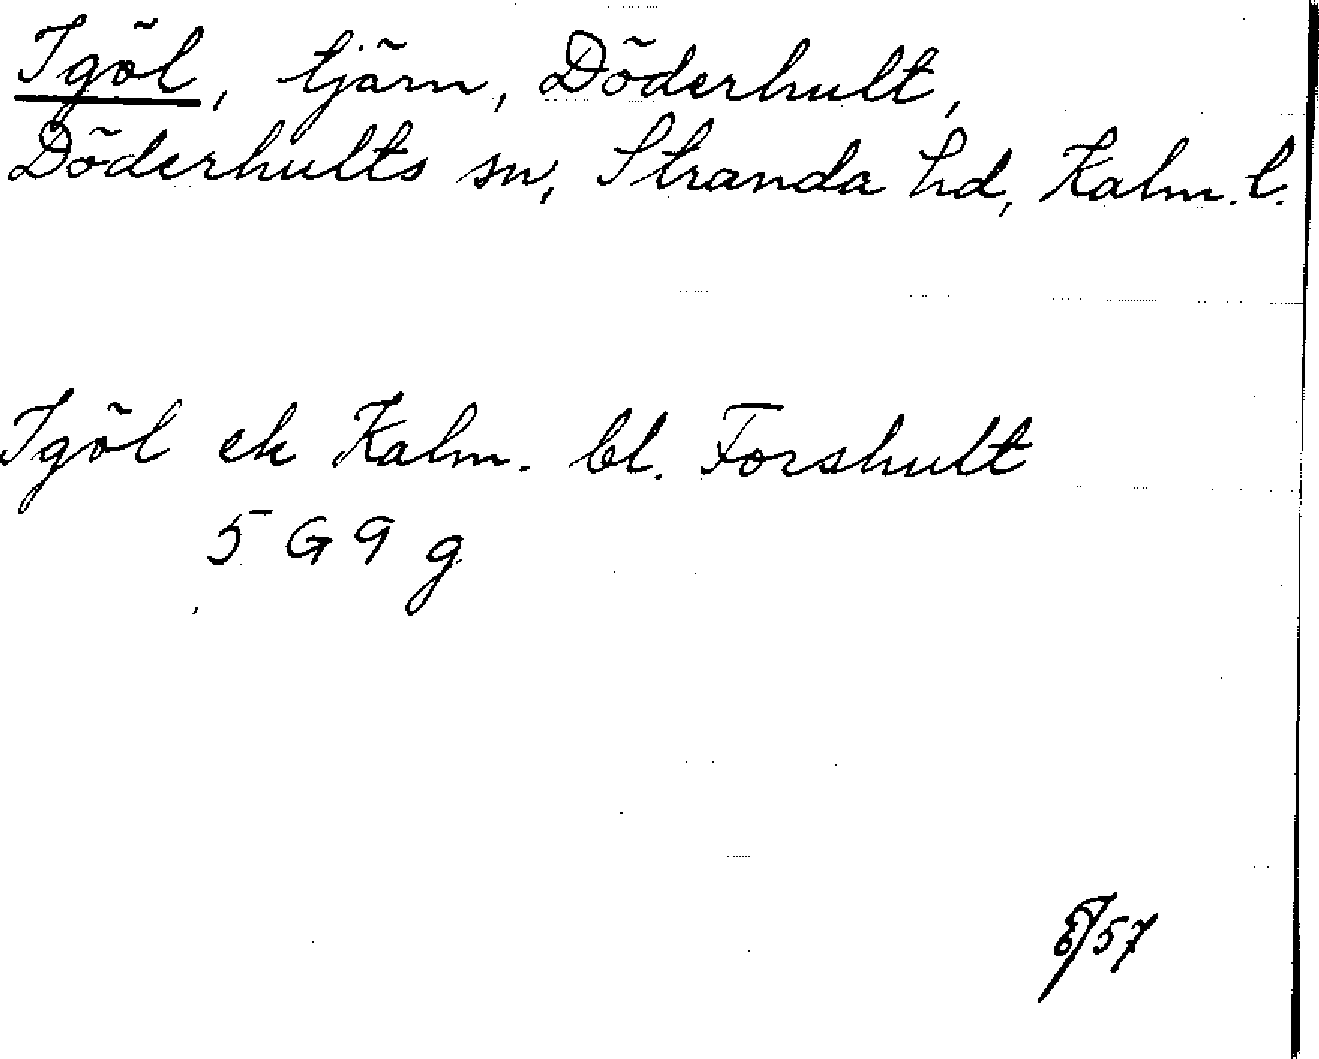 Igöl, tjärn, Döderhult,
Döderhults sn, Stranda hd, Kalm. l.
Igöl ek Kalm. bl. Forshult
5 G 9 g
57